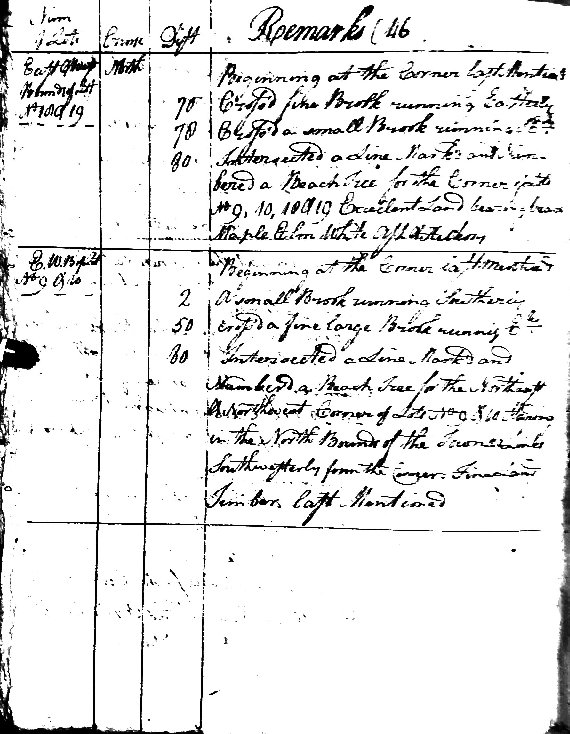 Num
of Lots Course Dist Remarks (46
East & West North Beginning at the Corner last Mention'd
Bounds of Lot 70 Cross'd fine Brook running Easterly
No 18 & 19 78 Cross'd a small Brook running
80 Intersected a Line Mark'd and Num-
bered a Beach Tree for the Corner of Lots
No 9, 10, 18 & 19 Excellent Land bearing
Maple Elm White Ash &
E. W. B of Lot Beginning at the Corner last Mention'd
No 9 & 10
2 A small Brook running Southerly
50 cross'd a fine large Brook running
80 Intersected a Line Mark'd and
Numbered a Beach Tree for the Northeast
& Northwest Corner of Lots No 9 & 10
in the North Bounds of the
Southwesterly from the Corner. Fine
Timber last Mentioned